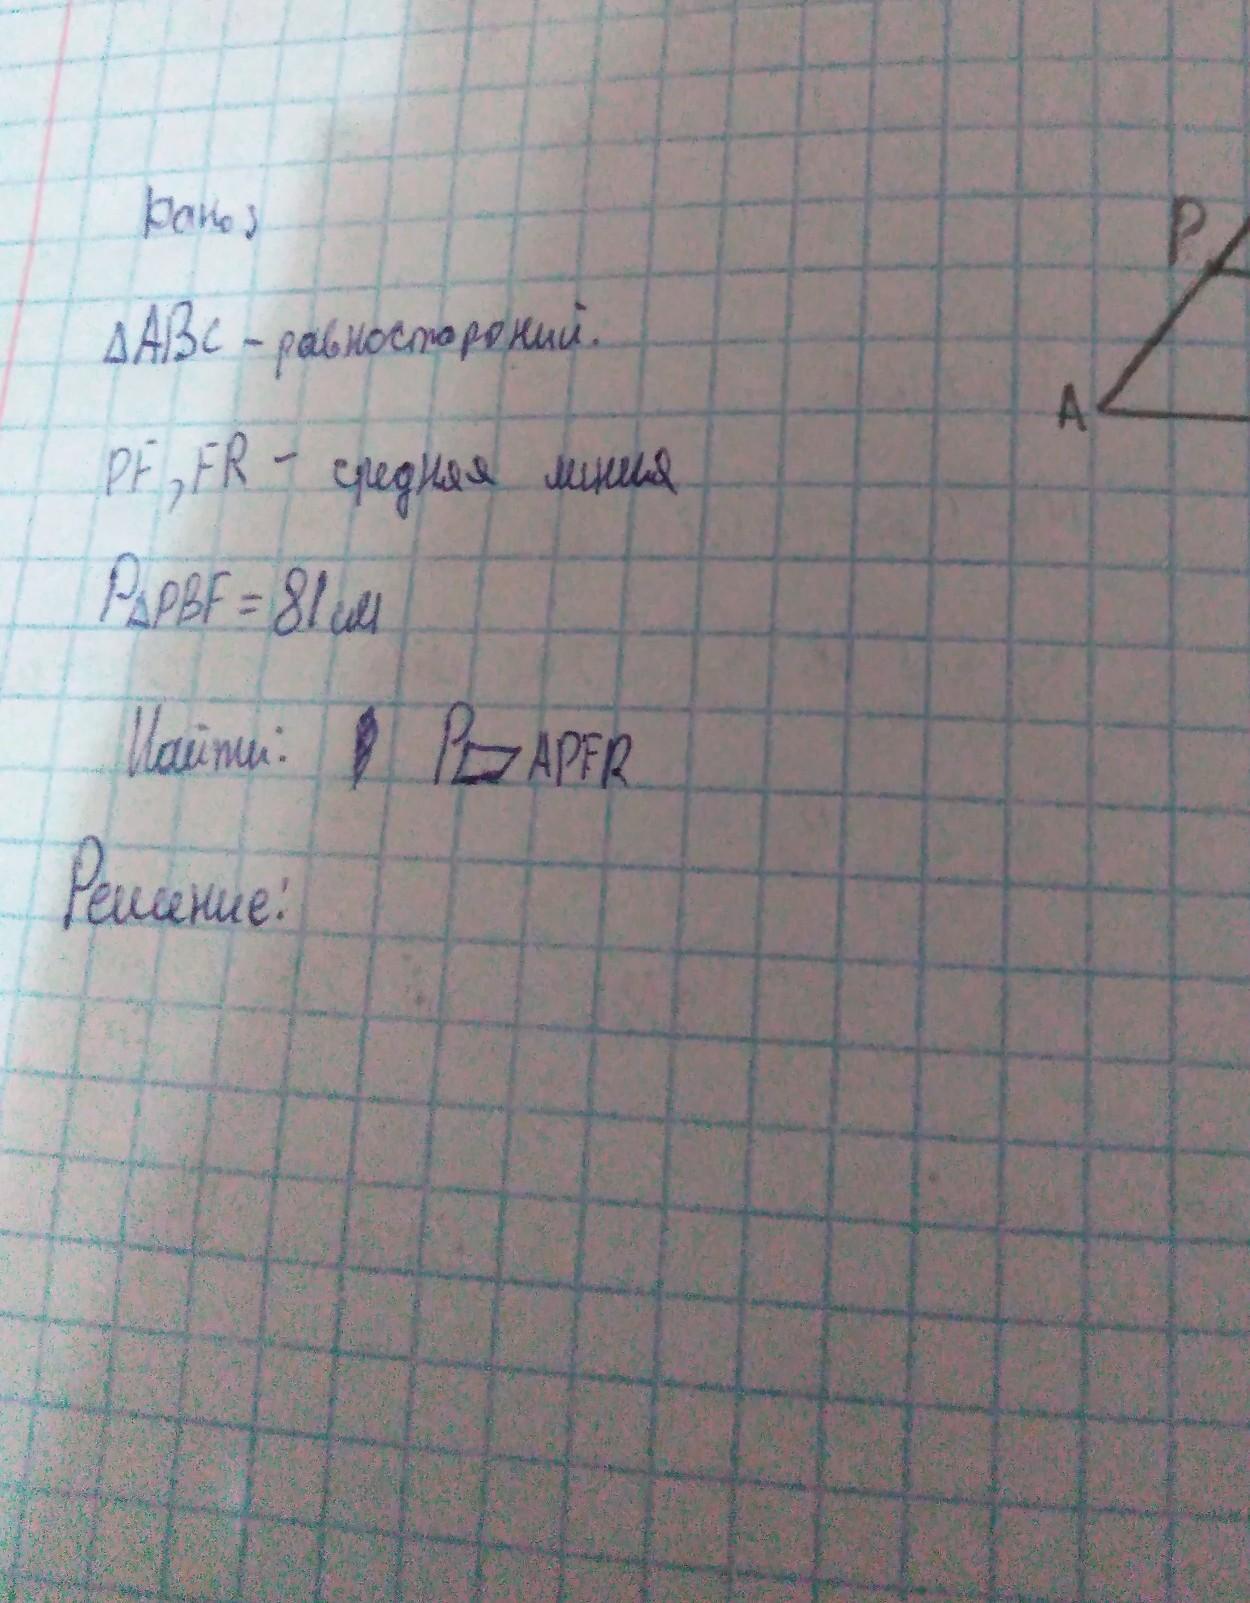 Дано:
P
ΔABC - равностороний.
A
PF, FR - средняя линия
PΔPBF = 81 см
Найти: P▱APFR
Решение: